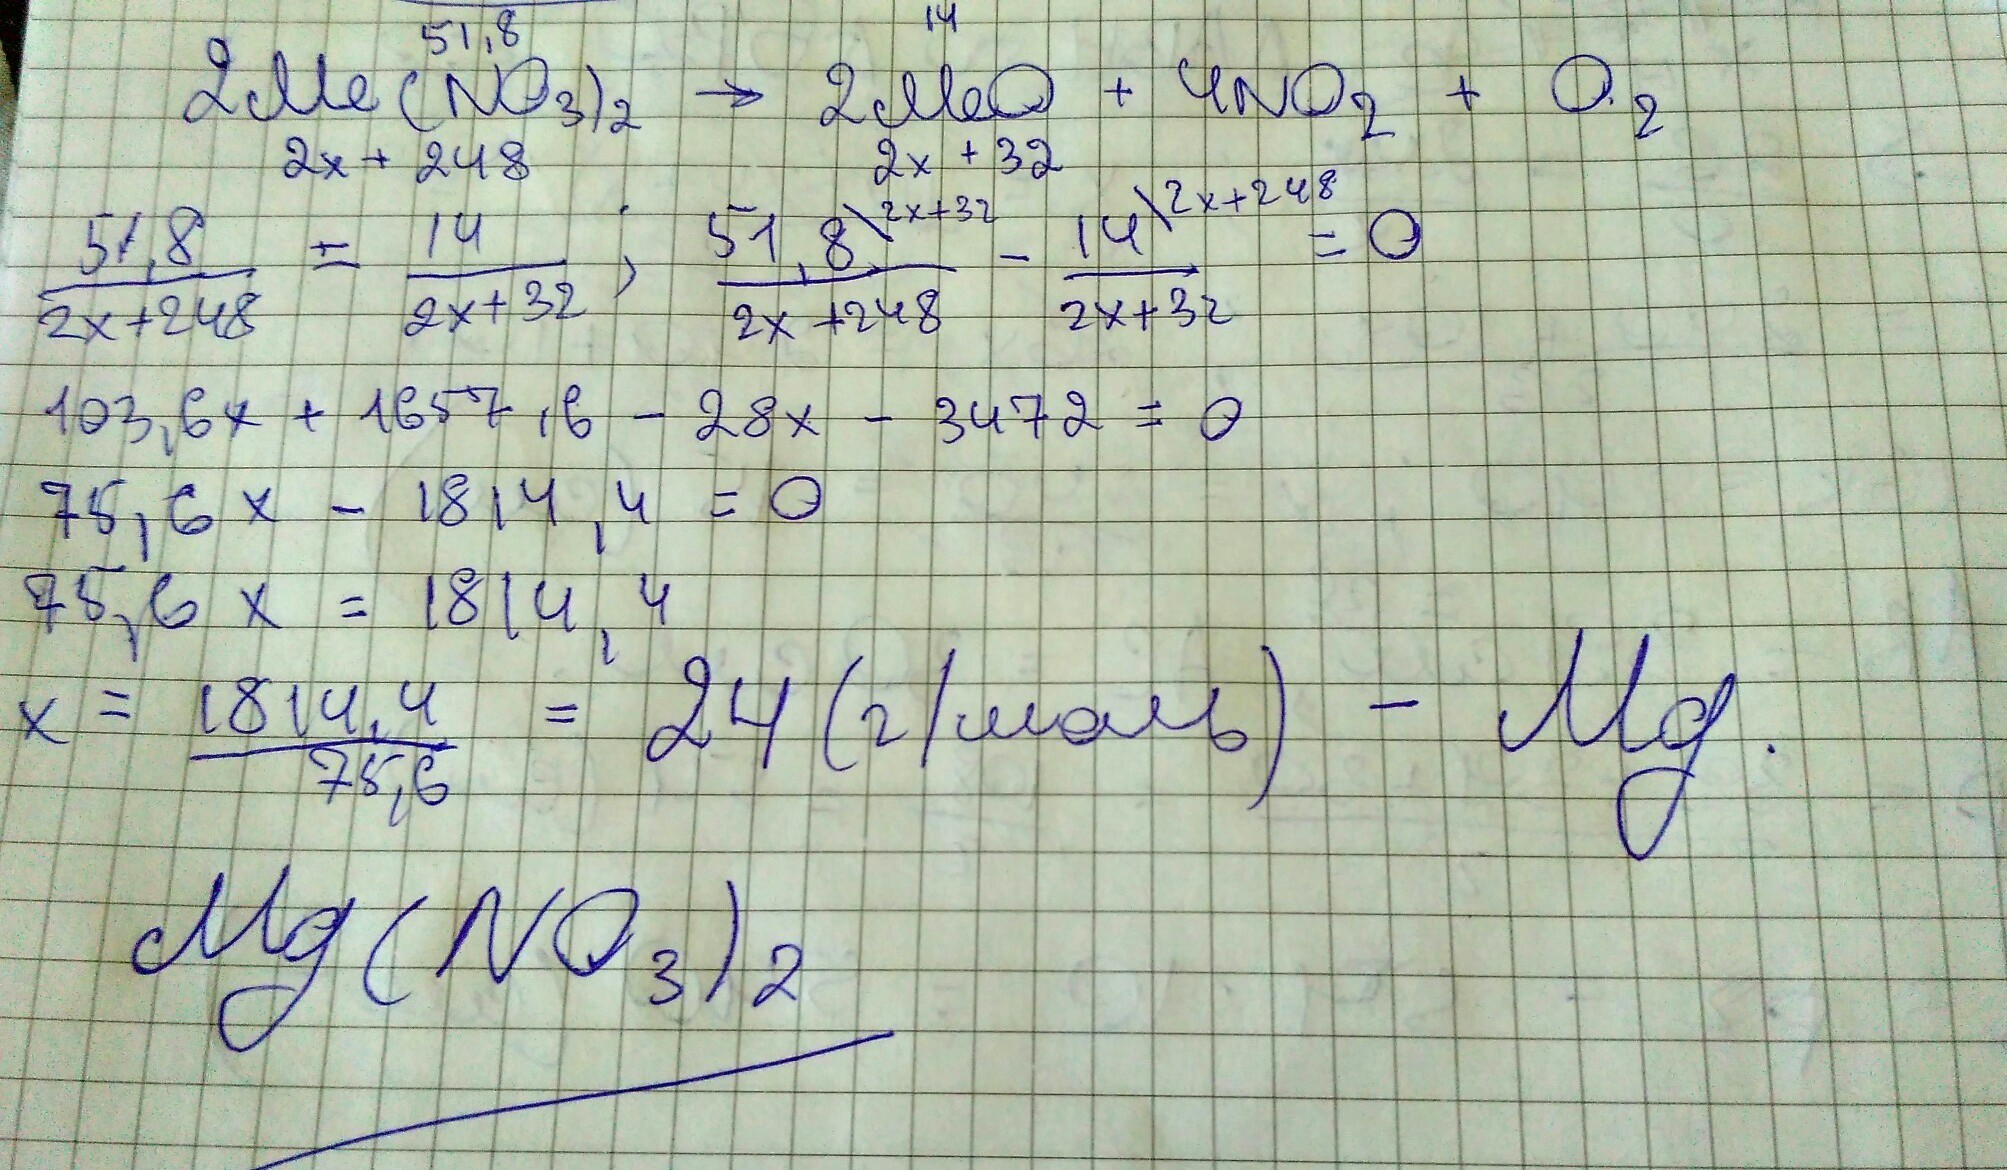 51,8 14
2Me(NO3)2 → 2MeO + 4NO2 + O2
2x + 248 2x + 32
51,8 / 2x+248 = 14 / 2x+32 ; 51,8 \2x+32 / 2x+248 - 14 \2x+248 / 2x+32 = 0
103,6x + 1657,6 - 28x - 3472 = 0
75,6x - 1814,4 = 0
75,6x = 1814,4
x = 1814,4 / 75,6 = 24 (г/моль) - Mg.
Mg(NO3)2